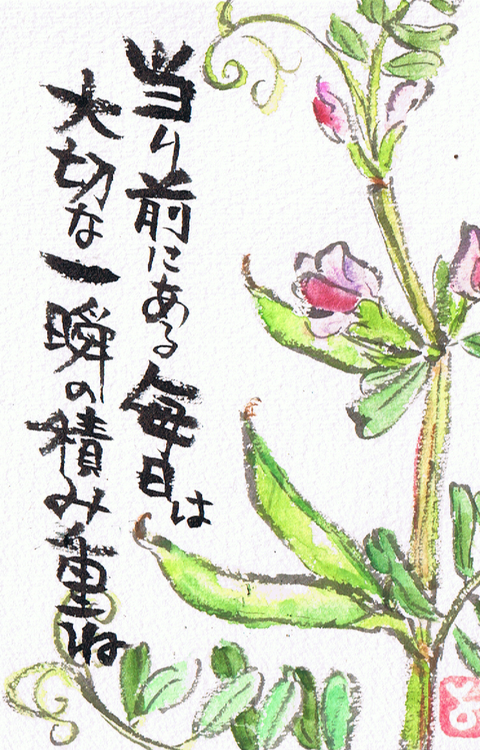 当り前にある毎日は
大切な一瞬の積み重ね